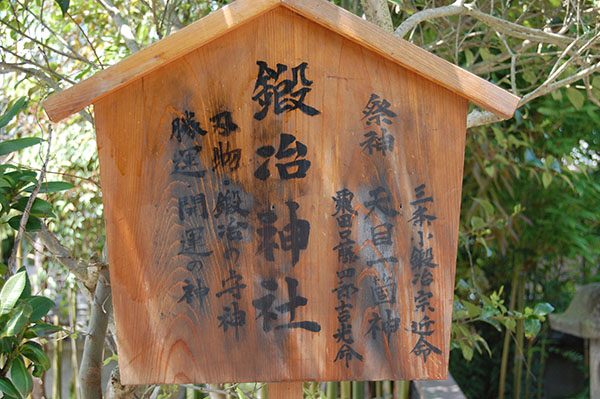 祭神
三条小鍛冶宗近命
天目一箇神
粟田口藤四郎吉光命
鍛冶神社
刃物・鍛冶の守神
勝運・開運の神